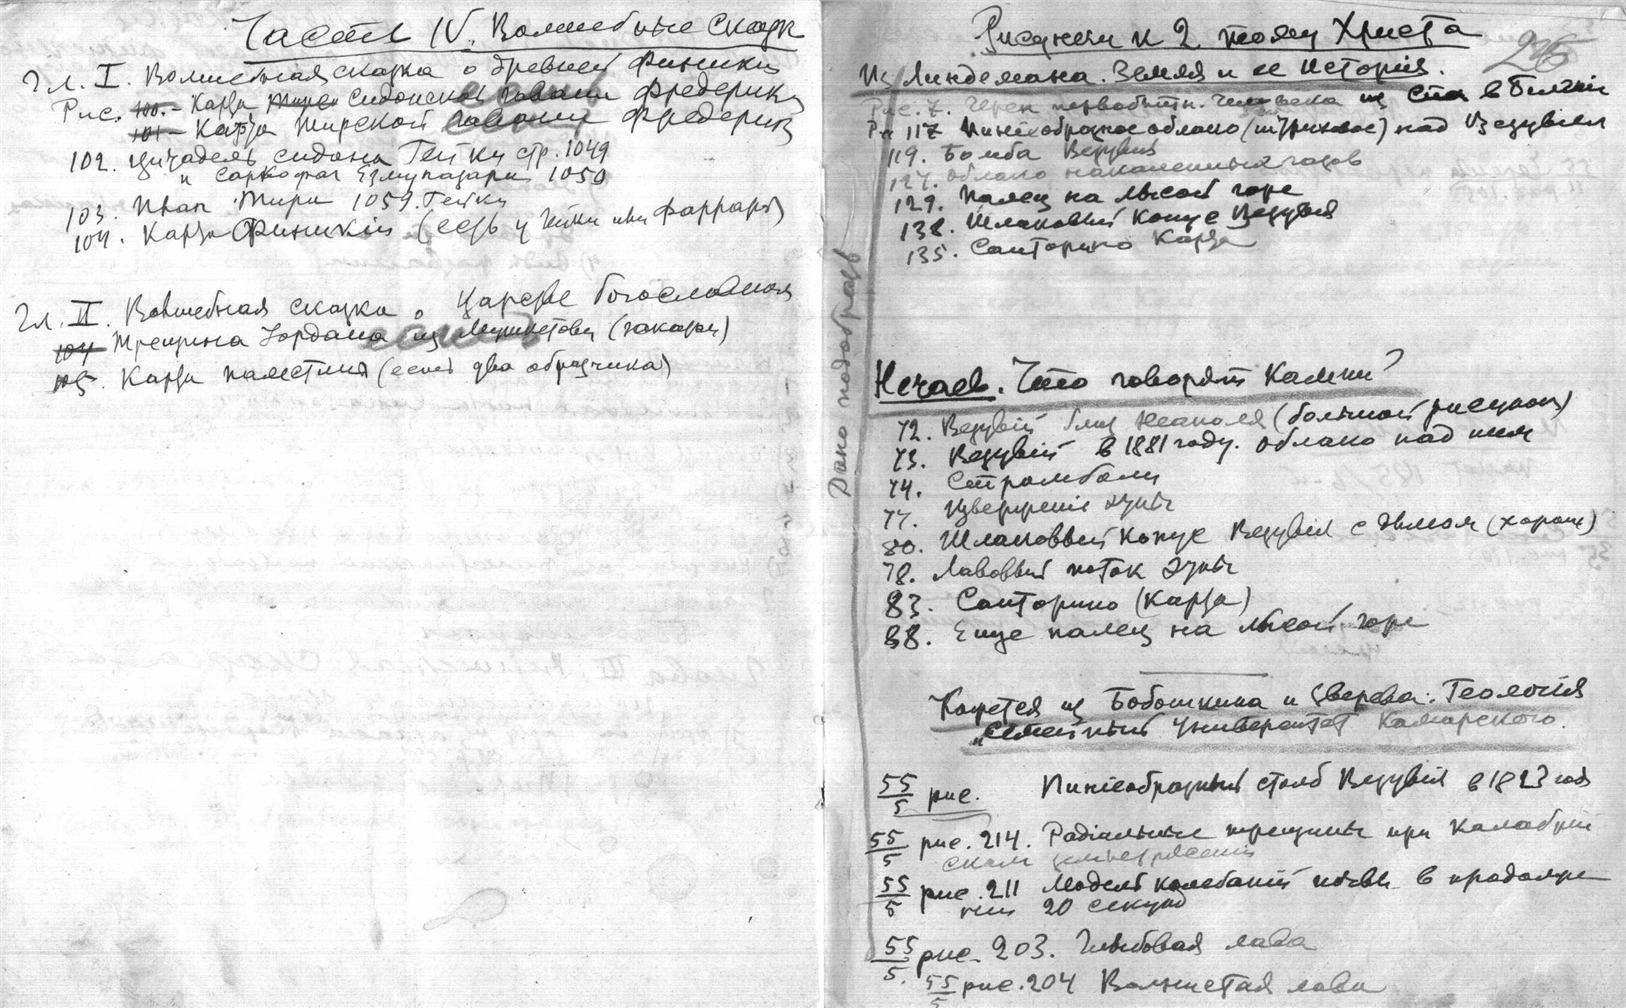 Часть IV. Волшебные сказки
Гл. I. Волшебная сказка о древней Финикии
Рис. 100. Карта Сидонской гавани Фредерика
101 Карта Тирской гавани Фредерик
102. Цитадель Сидона Гейки стр. 1049
и саркофаг Езмуназара 1050
103. План Тира 1059. Гейки
104. Карта Финикии (есть у Гейки или Фаррара)
Гл. II. Волшебная сказка о Царстве богославном
104 Трещина Иордана из Мушкетова (заказан)
105. Карта Палестины (есть два образчика)
Рисунки к 2 тому Христа
295
Из Линдемана. Земля и ее история.
Рис. 7. Череп первобытн. человека из Спа в Бельгии
Рис 117 Пиниеобразное облако (штриховое) над Везувием
119. Бомба Везувия
127. Облако накаленных газов
129. Палец на Лысой горе
138. Шлаковый конус Везувия
135. Санторино Карта
Дано подобрать
Нечаев. Что говорят камни?
72. Везувий близ Неаполя (большой рисунок)
73. Везувий в 1881 году. Облако над ним
74. Стромболи
77. Извержение Этны
80. Шлаковый конус Везувия с дымом (хорош)
78. Лавовый поток Этны
83. Санторино (карта)
88. Еще палец на Лысой горе
Кажется из Бобошкина и Зверева: Геология
"Семейный университет" Комарского.
55/5 рис. Пиниеобразный столб Везувия в 1823 году
55/5 рис. 214. Радіальные трещины при Калабрій
ском землетрясеніи
55/5 рис. 211 Модель колебаній почвы в продолже
нии 20 секунд
55/5 рис. 203. Глыбовая лава
55/5 рис. 204 Волнистая лава